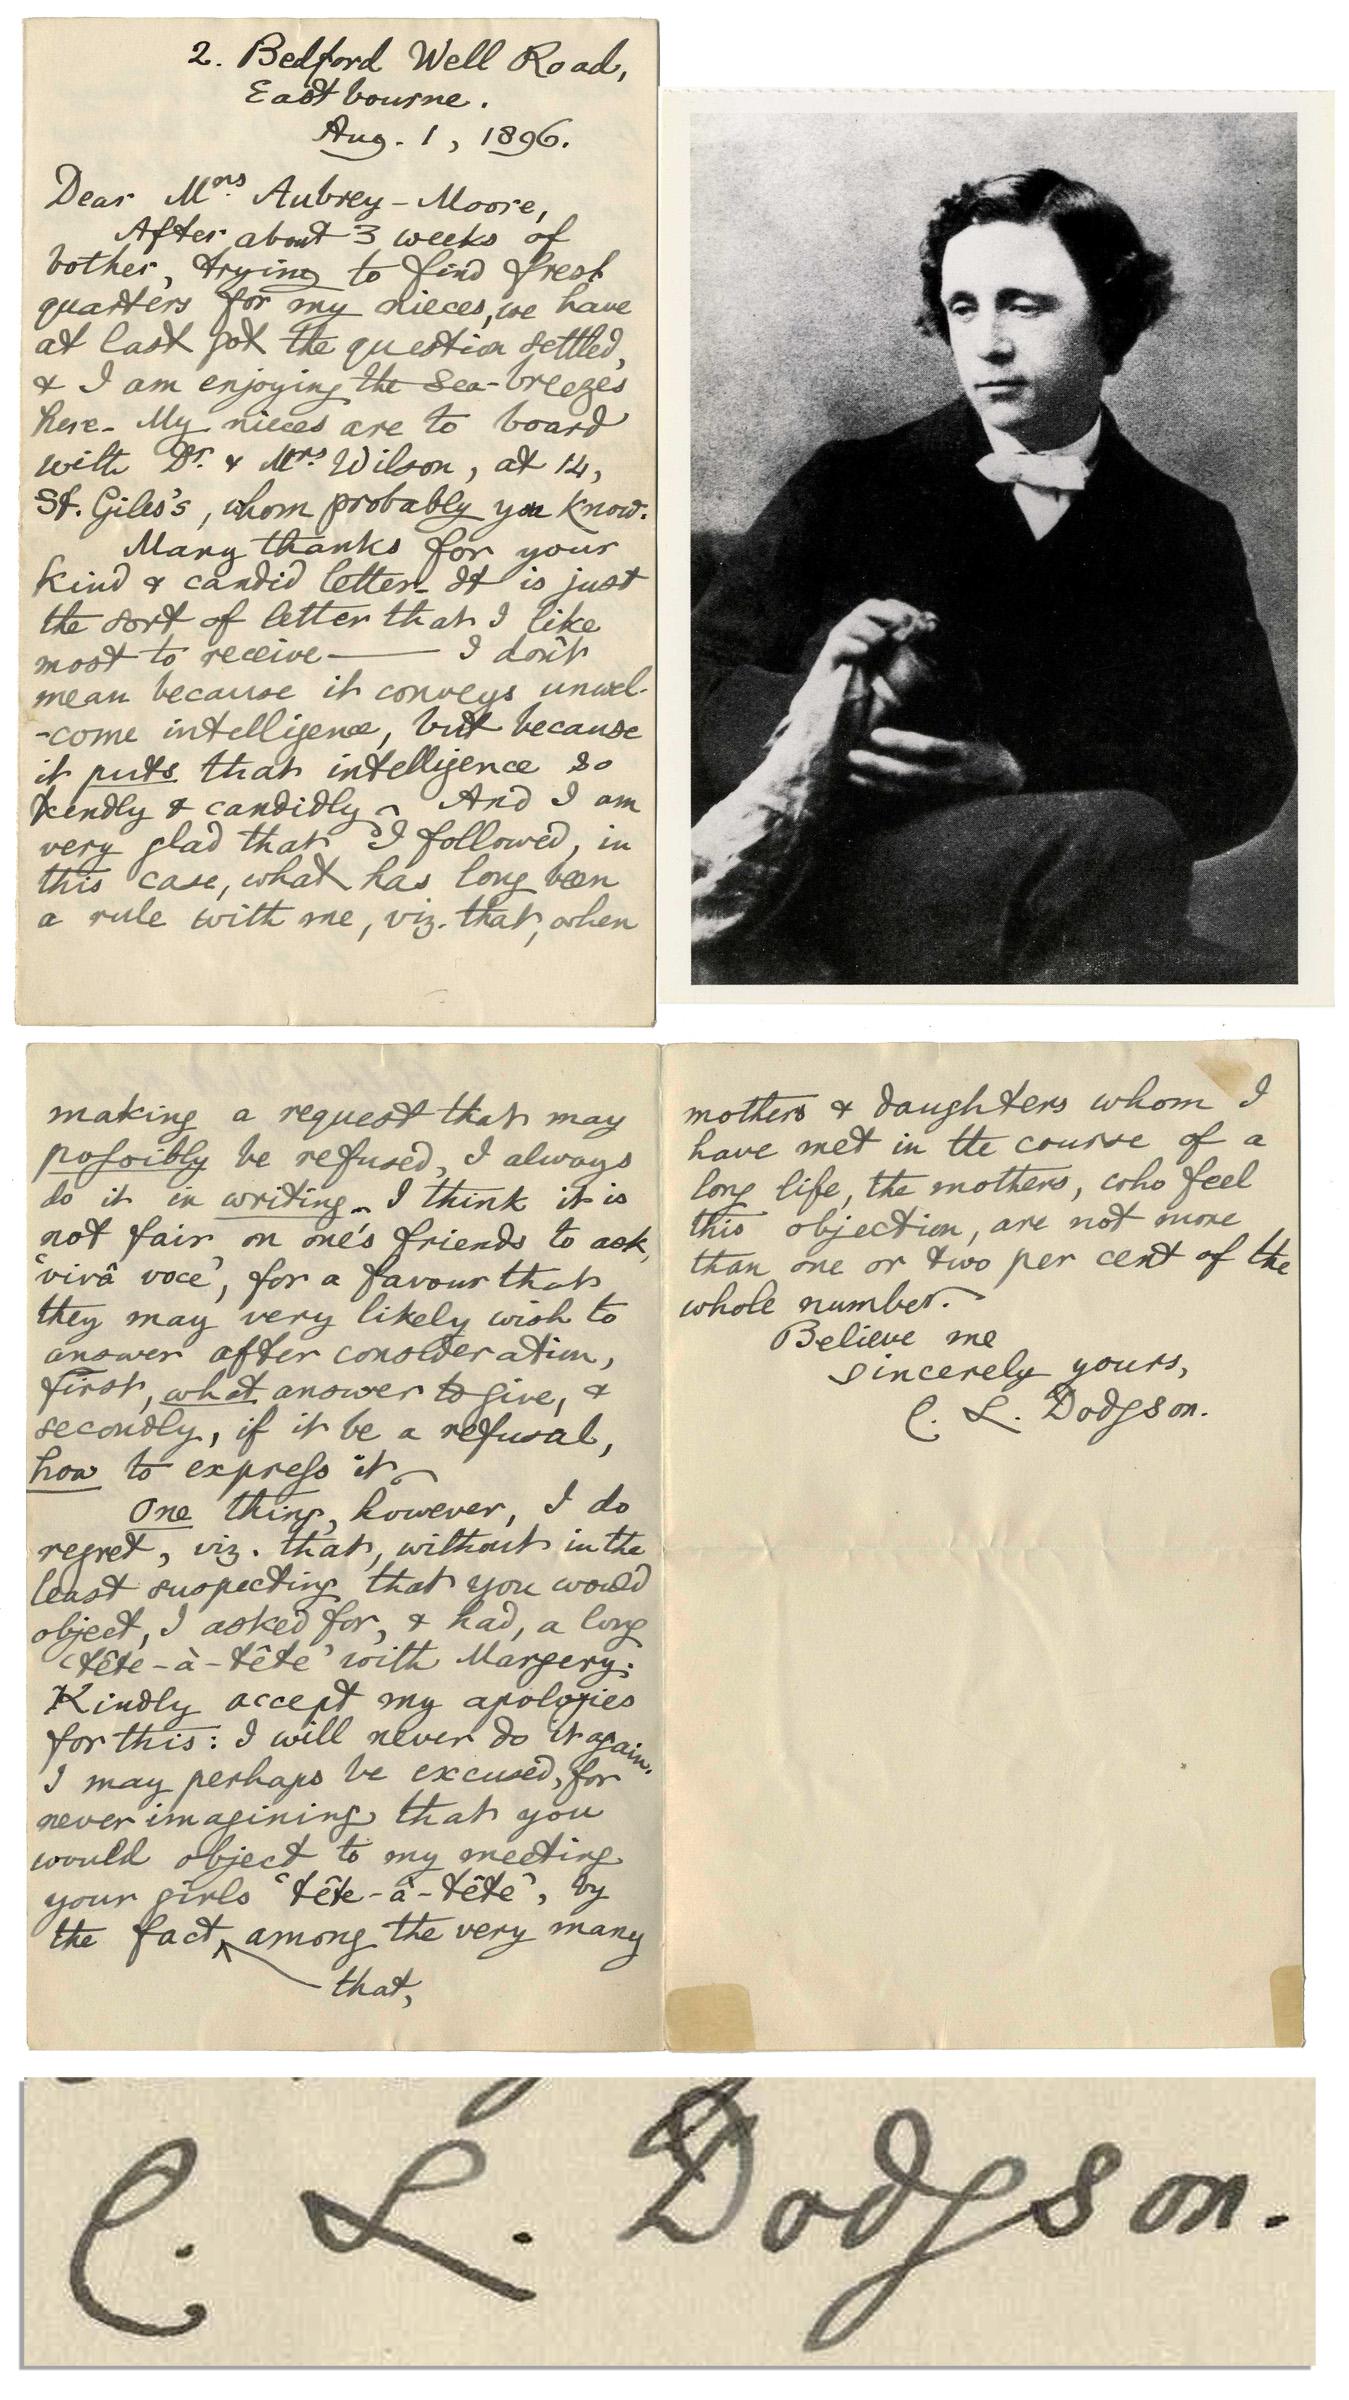 2. Bedford Well Road,
Eastbourne.
Aug. 1, 1896.
Dear Mrs. Aubrey-Moore,
After about 3 weeks of
bother, trying to find fresh
quarters for my nieces, we have
at last got the question settled,
& I am enjoying the sea-breezes
here. My nieces are to board
with Dr. & Mrs. Wilson, at 14,
St. Giles's, whom probably you know.
Many thanks for your
kind & candid letter. It is just
the sort of letter that I like
most to receive — I don't
mean because it conveys unwel-
-come intelligence, but because
it puts that intelligence so
kindly & candidly. And I am
very glad that I followed, in
this case, what has long been
a rule with me, viz. that, when
making a request that may
possibly be refused, I always
do it in writing. I think it is
not fair on one's friends to ask,
'vivâ voce', for a favour that
they may very likely wish to
answer after consideration,
first, what answer to give, &
secondly, if it be a refusal,
how to express it.
One thing, however, I do
regret, viz. that, without in the
least suspecting that you would
object, I asked for, & had, a long
'tête-à-tête' with Margery.
Kindly accept my apologies
for this: I will never do it again.
I may perhaps be excused, for
never imagining that you
would object to my meeting
your girls 'tête-à-tête', by
the fact, among the very many
that,
mothers & daughters whom I
have met in the course of a
long life, the mothers, who feel
this objection, are not more
than one or two per cent of the
whole number.
Believe me
sincerely yours,
C. L. Dodgson.
C. L. Dodgson.